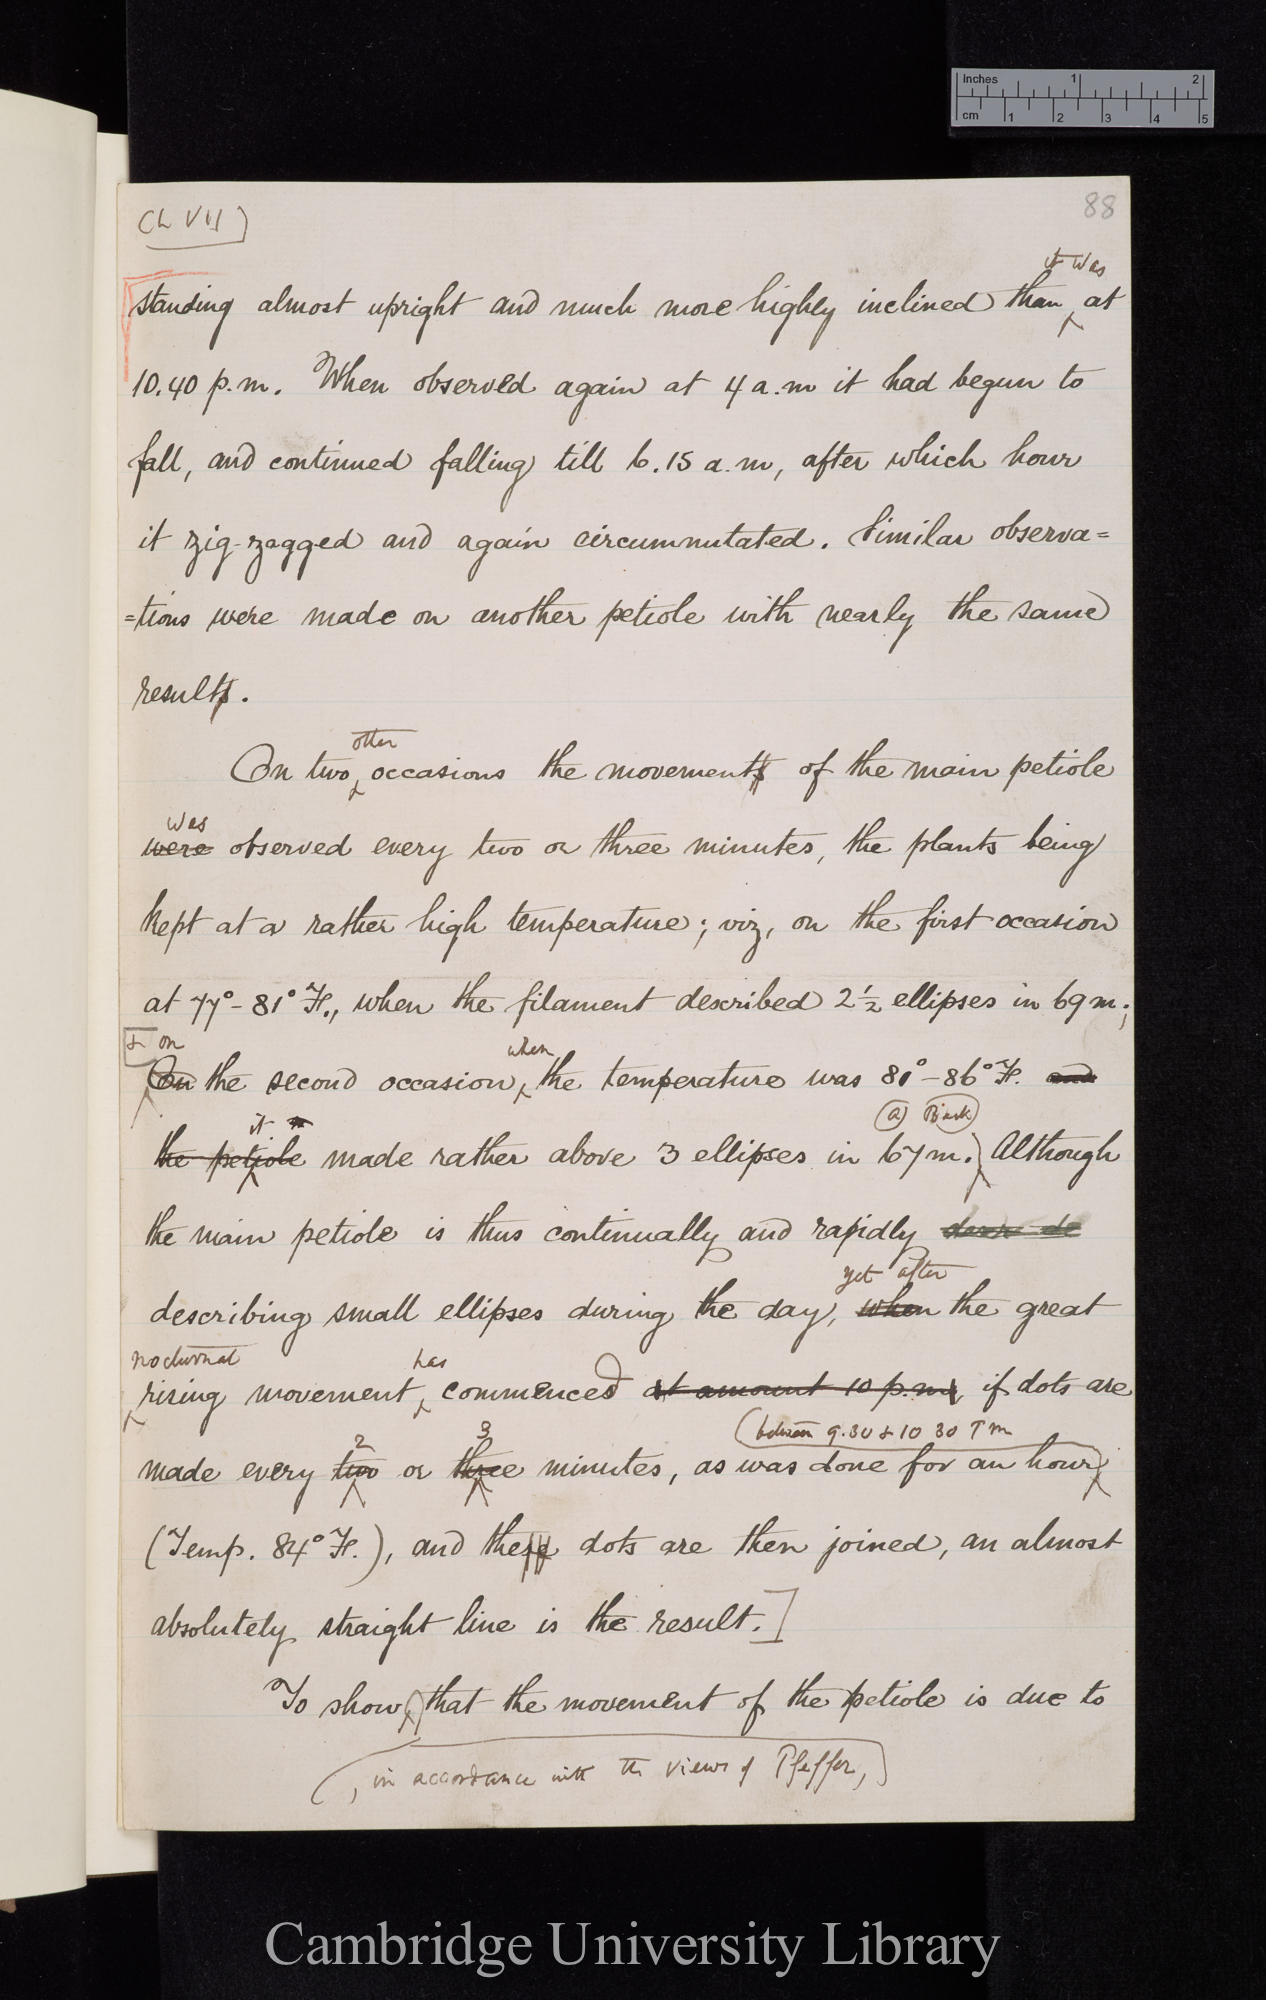 Inches 1 2
cm 1 2 3 4 5
(Ch VII)
88
it was
standing almost upright and much more highly inclined than at
10.40 p.m. When observed again at 4 a.m it had begun to
fall, and continued falling till 6.15 a.m, after which hour
it zig-zagged and again circumnutated. Similar observa=
=tions were made on another petiole with nearly the same
results.
other
On two occasions the movements of the main petiole
was
were observed every two or three minutes, the plants being
kept at a rather high temperature; viz, on the first occasion
at 77°-81° F., when the filament described 2½ ellipses in 69 m.;
& on when
On the second occasion, the temperature was 80°-86° F. and
it
(a) Black
the petiole made rather above 3 ellipses in 67 m. Although
the main petiole is thus continually and rapidly
yet after
describing small ellipses during the day, when the great
nocturnal has
rising movement, commenced at amount 10 p.m, if dots are
between 9.30 & 10 30 P m
2 3
made every two or three minutes, as was done for an hour
(Temp. 84° F.), and these dots are then joined, an almost
absolutely straight line is the result.]
To show that the movement of the petiole is due to
(, in accordance with the views of Pfeffer,)
Cambridge University Library